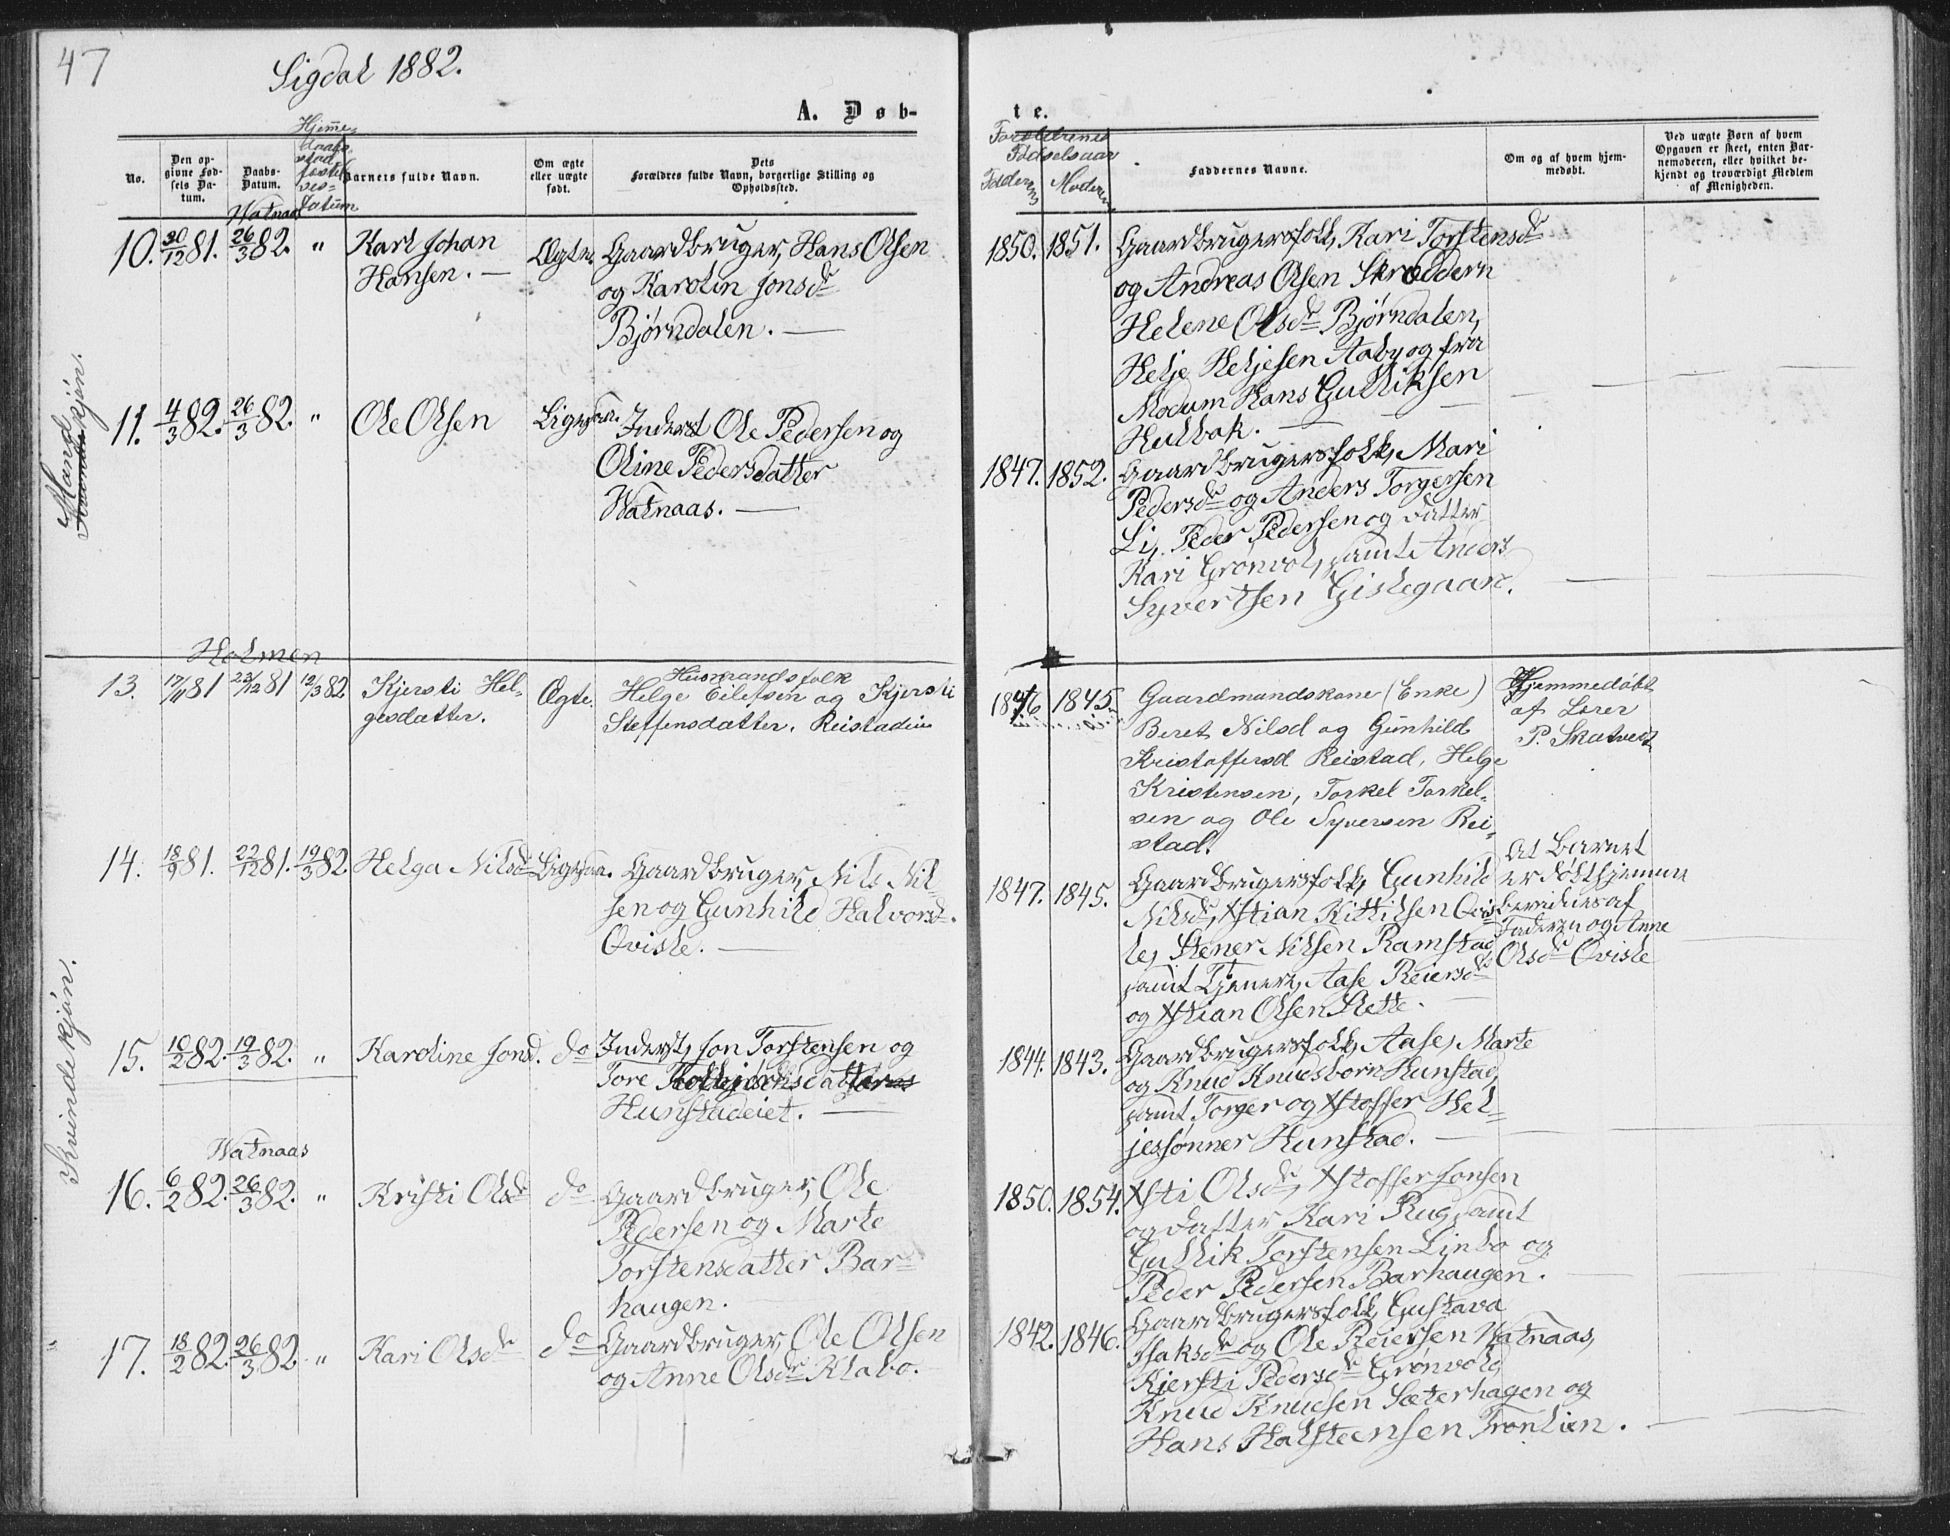 47
Sigdal 1882.
A. Døb-
te.
No.
Den op-
givne Fød-
sels Da-
tum.
Daabs-
Datum.
Hjeme
daabs
Barnets fulde Navn.
Om ægte
eller uægte
født.
Dets
Forældres fulde Navn, borgerlige Stilling og
Opholdssted.
Forældrenes
Fødselsaar
Faderen
Moderen
Faddernes Navne.
Om og af hvem hjem-
medøbt.
Ved uægte Børn af hvem
Opgaven er skeet, enten Bar-
nemoderen, eller hvilket be-
kjendt og troværdigt Medlem
af Menigheden.
Mandkjøn.
Watnaas
10. 30/12 81. 26/3 82. "
Karl Johan
Hansen. —
Ægte.
Gaardbruger, Hans Olsen
og Karolin Jonsdr
Bjørndalen. —
1850. 1851.
Gaardbrugersfolk, Kari Torstensdr
og Andreas Olsen Skræddern
Helene Olsdr Bjørndalen,
Helje Heljesen Aaby og fra
Modum Hans Gulliksen
Hulbak. —
11. 4/3 82. 26/3 82. "
Ole Olsen
Ligesaa.
Inderst Ole Pedersen og
Oline Pedersdatter
Watnaas. —
1847. 1852.
Gaardbrugersfolk, Mari
Pedersdr og Anders Torgersen
Li, Peder Pedersen og datter
Kari Grønvol, samt Anders
Syvertsen Gislegaard.
Kvindekjøn.
Holmen
13. 17/11 81 23/12 81 12/3 82
Kjersti Hel-
gesdatter.
Ægte.
Husmandsfolk
Helge Eilefsen og Kjersti
Steffensdatter. Reistadeie
1846 1845.
Gaardmandskone (Enke)
Beret Nilsd og Gunhild
Kristoffersd Reistad, Helge
Kristensen, Torkel Torkel-
sen og Ole Syversen Rei-
stad.
Hjemmedøbt
af Lærer
P. Skatvedt
14. 18/9 81. 22/12 81. 19/3 82.
Helga Nilsdr
Ligesaa.
Gaardbruger, Nils Nil-
sen og Gunhild Halvorsd.
Qvisle. —
1847. 1845.
Gaardbrugersfolk, Gunhild
Nilsdr, Xstian Kittilsen Qvis-
le, Stener Nilsen Ramstad
samt Tjenere, Aase Reiersdr
og Xstian Olsen Slette.
At Barnet
er døbt hjemme
bevidnes af
Faderen og Anne
Olsdr Qvisle
15. 10/2 82. 19/3 82. "
Karoline Jonsd.
do
Inderst, Jon Torstensen og
Tore
Hunstadeiet. —
1844. 1843.
Gaardbrugersfolk, Aase, Marte
og Knud Knudsborn Hunstad,
samt, Torger og Xstoffer Hel-
jessønner Hunstad. —
Watnaas
16. 6/2 82. 26/3 82. "
Kristi Olsdr
do
Gaardbruger, Ole
Pedersen og Marte
Torstensdatter Bar-
haugen. —
1850. 1854.
Xsti Olsdr, Xstoffer Jonsen
og datter Kari Rug, samt
Gullik Torstensen Linbo og
Peder Pedersen Barhaugen. —
17. 18/2 82. 26/3 82 "
Kari Olsdr
do
Gaardbruger, Ole Olsen
og Anne Olsdr Klabo. —
1842. 1846.
Gaardbrugersfolk, Gustava
Isaksdr og Ole Reiersen Watnaas,
Kjersti Pedersdr Grønvold,
Knud Knudsen Sæterhagen og
Hans Halsteensen Tronlien. —